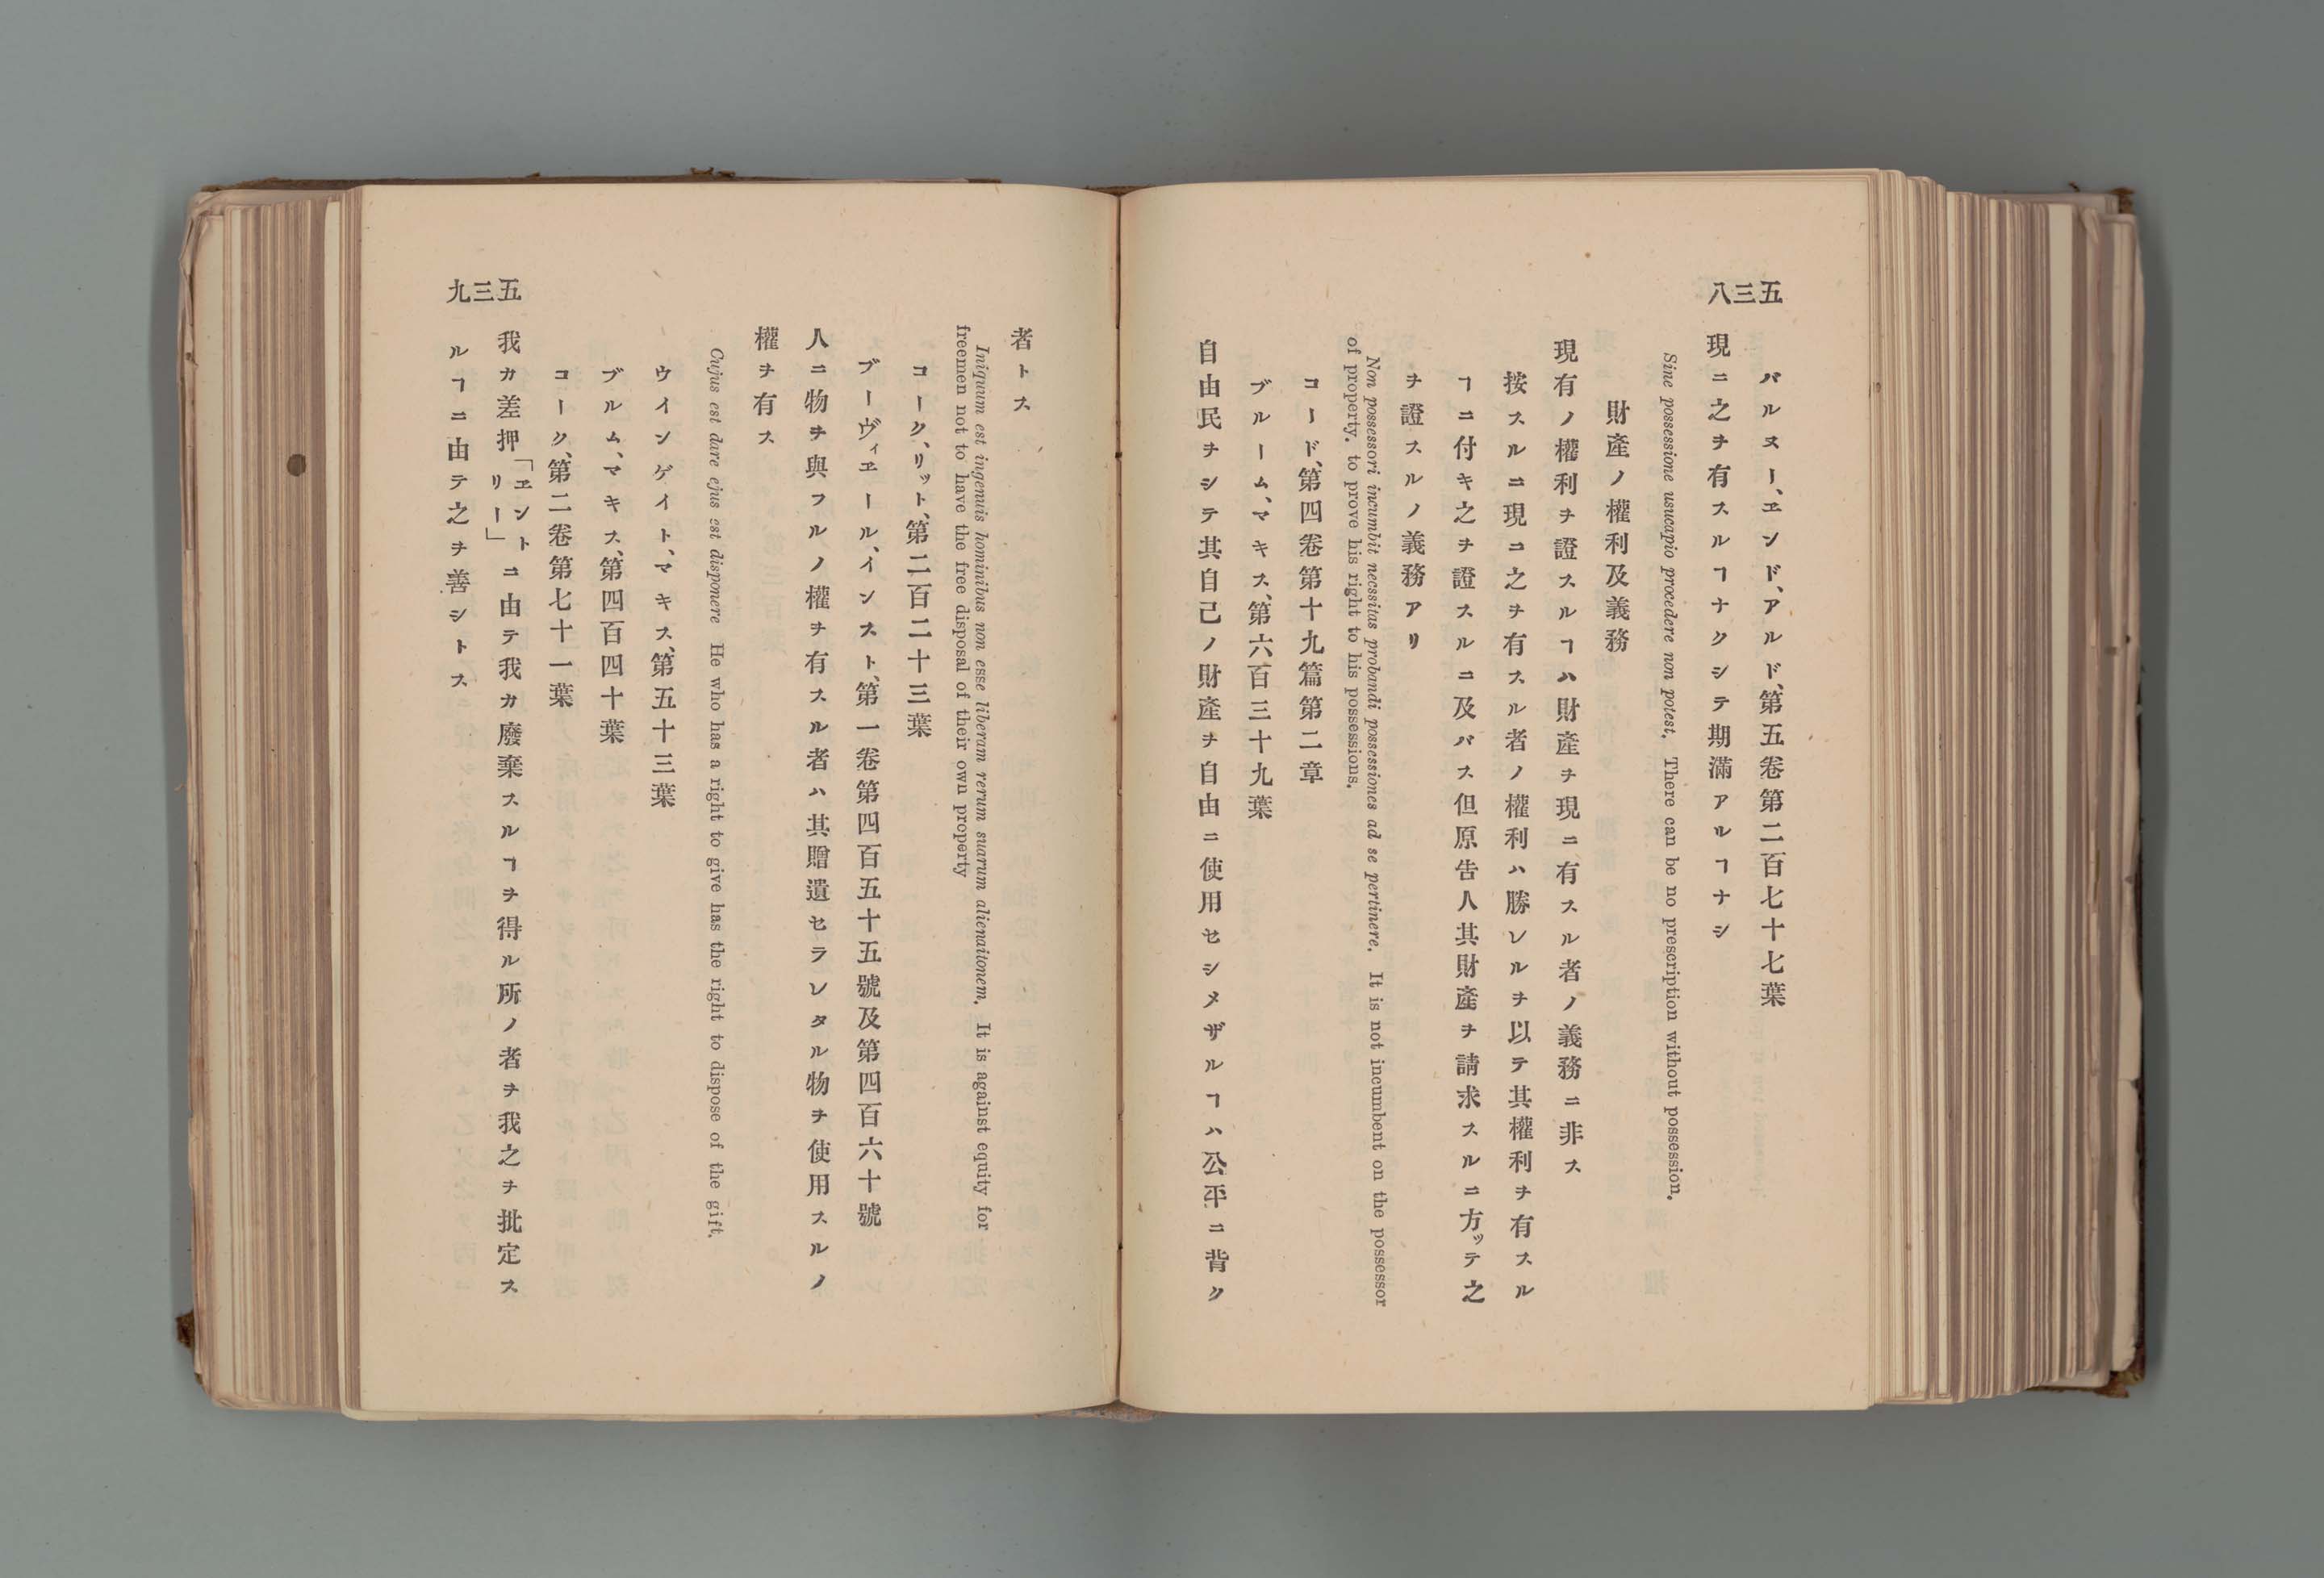 五三八
バルヌー、ヱンド、アルド、第五卷第二百七十七葉
現ニ之ヲ有スルヿナクシテ期滿アルヿナシ
Sine possessione usucapio procedere non potest. There can be no prescription without possession.
財產ノ權利及義務
現有ノ權利ヲ證スルヿハ財產ヲ現ニ有スル者ノ義務ニ非ス
按スルニ現ニ之ヲ有スル者ノ權利ハ勝レルヲ以テ其權利ヲ有スル
ヿニ付キ之ヲ證スルニ及バス但原告人其財產ヲ請求スルニ方ッテ之
ヲ證スルノ義務アリ
Non possessori incumbit necessitas probandi possessiones ad se pertinere. It is not incumbent on the possessor
of property. to prove his right to his possessions.
コード、第四卷第十九篇第二章
ブルーム、マキス、第六百三十九葉
自由民ヲシテ其自己ノ財產ヲ自由ニ使用セシメザルヿハ公平ニ背ク
者トス
Iniquum est ingenuis hominibus non esse liberam rerum suarum alienaitonem. It is against equity for
freemen not to have the free disposal of their own property
コーク、リット、第二百二十三葉
ブーヴィヱール、インスト、第一卷第四百五十五號及第四百六十號
人ニ物ヲ與フルノ權ヲ有スル者ハ其贈遺セラレタル物ヲ使用スルノ
權ヲ有ス
Cujus est dare ejus est disponere He who has a right to give has the right to dispose of the gift.
ウインゲイト、マキス、第五十三葉
ブルム、マキス、第四百四十葉
コーク、第二卷第七十一葉
我カ差押「ヱントリー」ニ由テ我カ廢棄スルヿヲ得ル所ノ者ヲ我之ヲ批定ス
ルヿニ由テ之ヲ善シトス
五三九